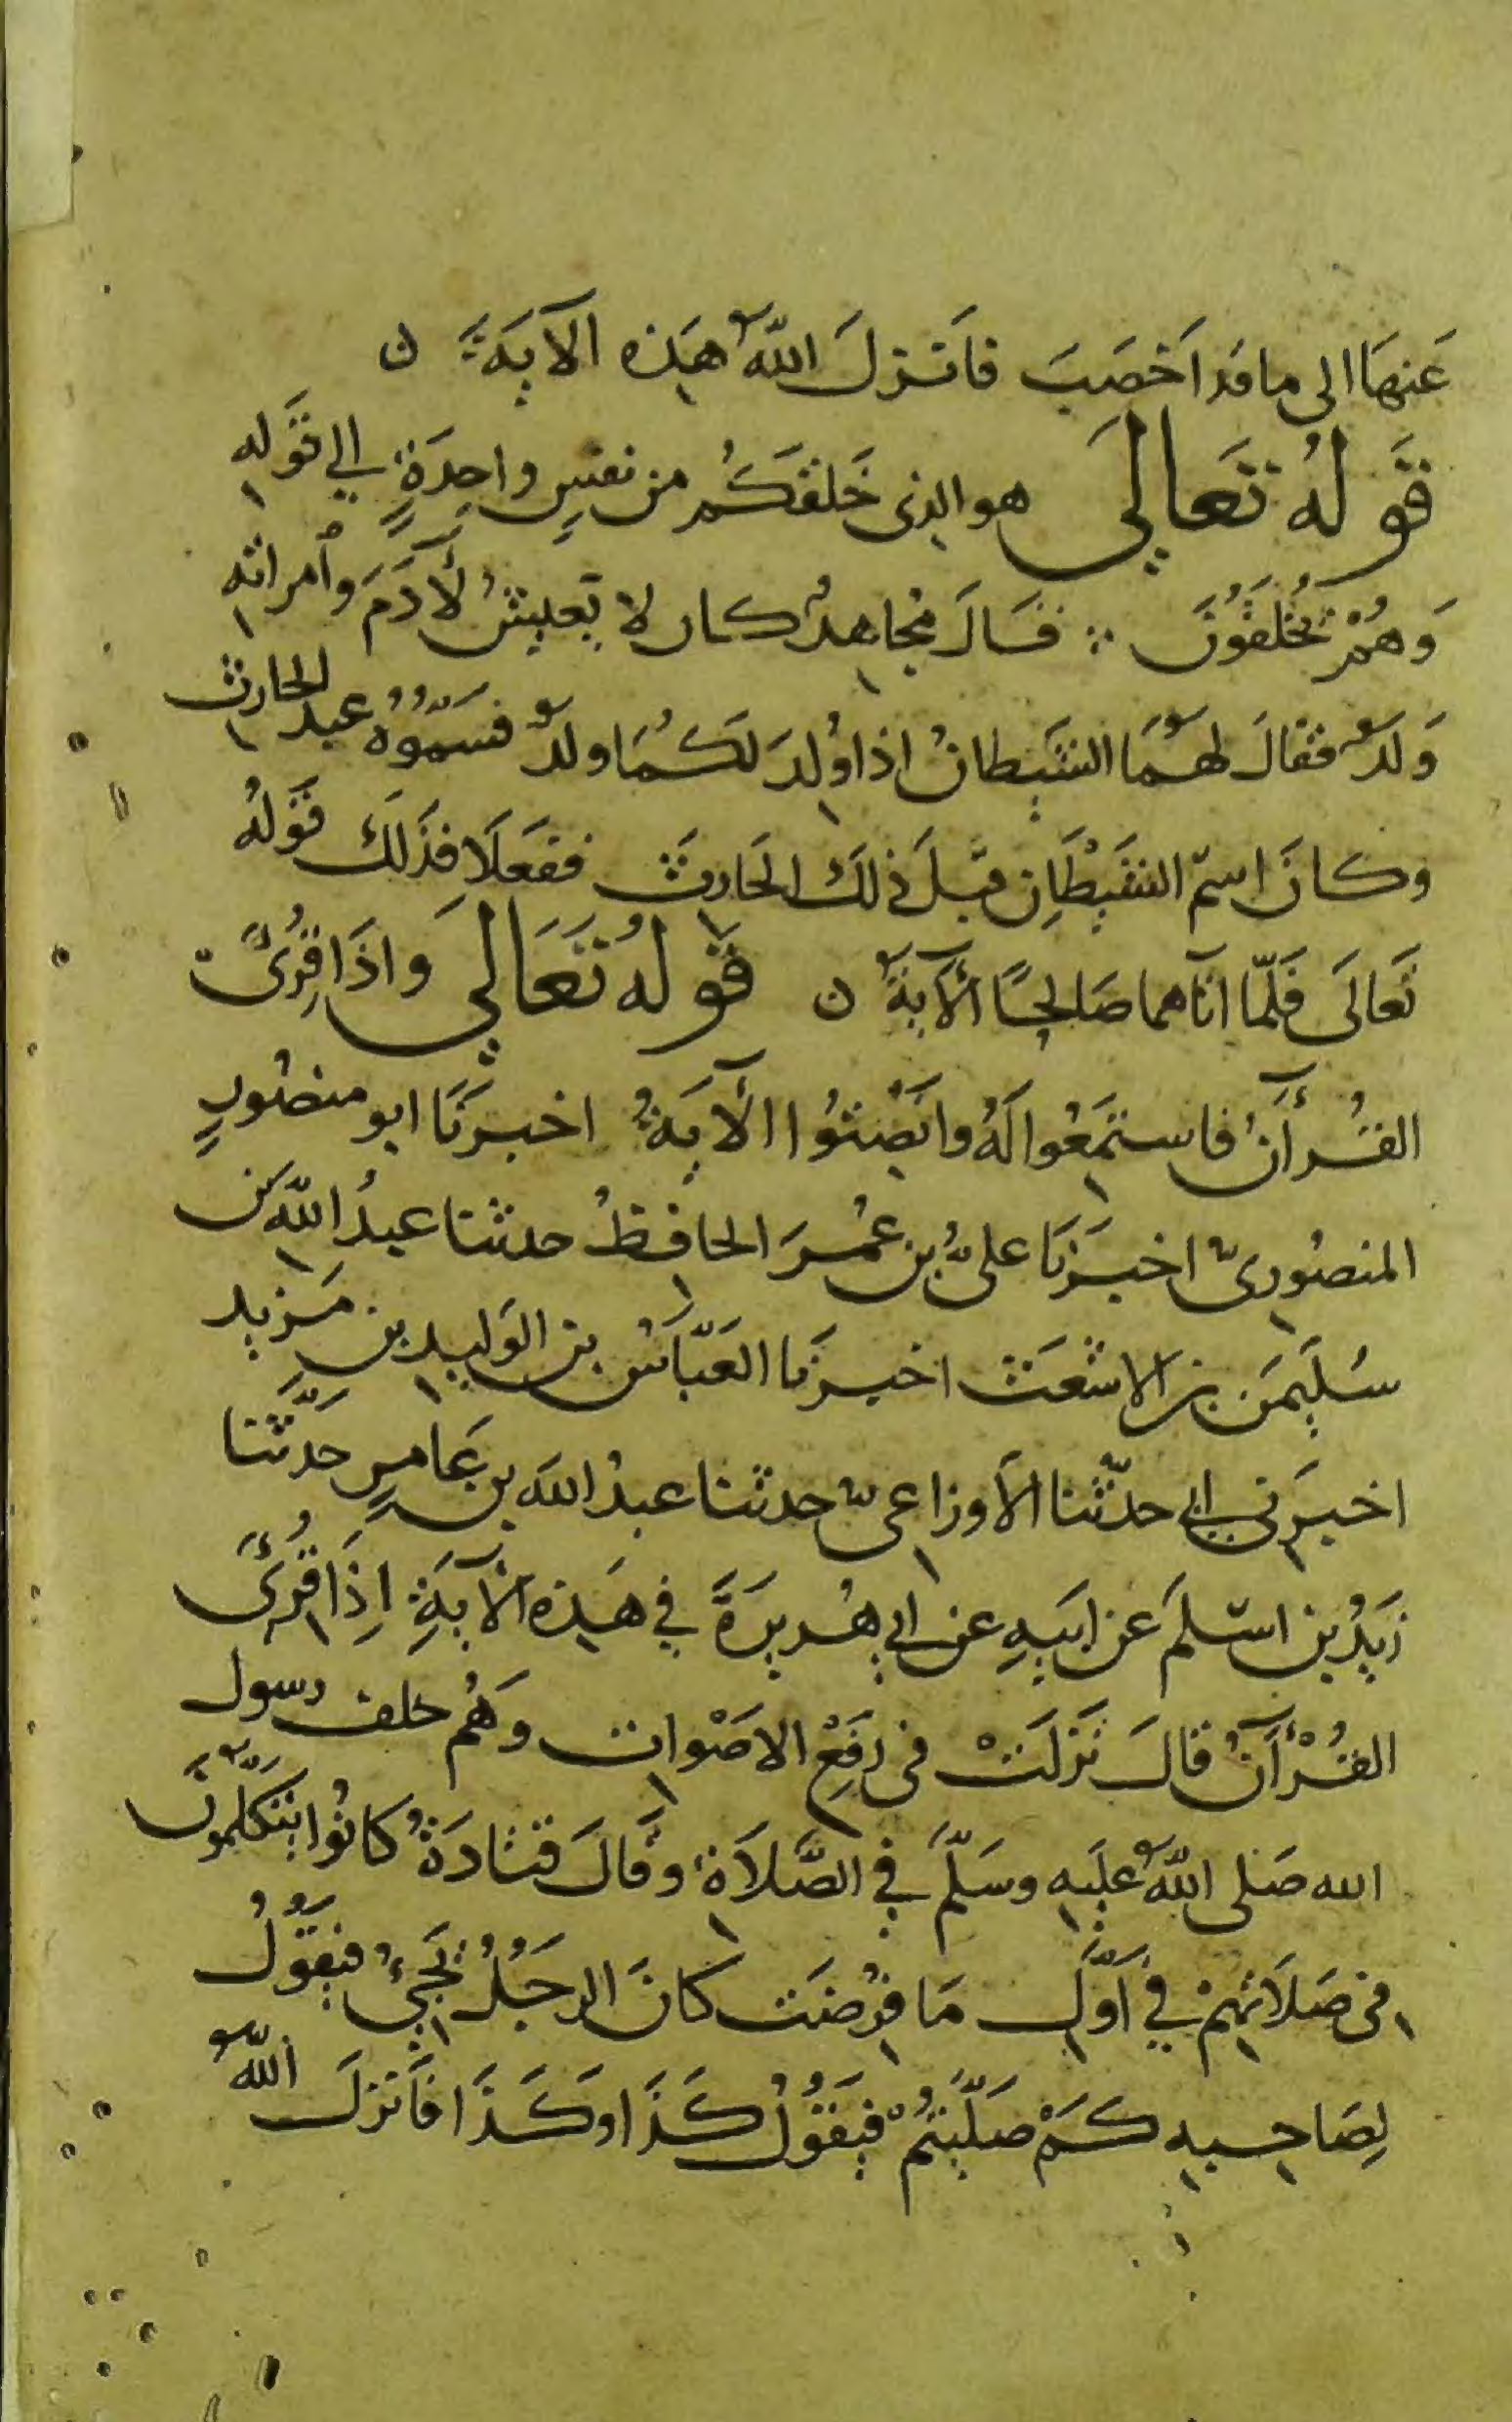 عَنهَا الى ما قد اَخصَبَ فاَنزلَ اللهُ هَذه الآيَةَ ن
قَولهُ تَعالى هو الذى خَلقكُم من نفسٍ واحِدَةٍ إلى قَوله
وَهُمْ يُخْلَقُونَ ∴ قَالَ مُجاهدٌ كان لا يَعِيشُ لآدَمَ وامراته
وَلدٌ فقالَ لهُمَا الشَيطانُ اذا وُلِدَ لكُمَا ولدٌ فسَمّوُهُ عبد الحارث
وكانَ اسمُ الشَيْطَانِ قبلَ ذلكَ الحَارِثَ ففَعَلَا فذَلكَ قَولهُ
تَعالَى فَلمّا آتَاهما صَالِحًا الآيَةَ ن قَولهُ تَعَالَى وَاذَا قُرِئَ
القُرآنُ فاستمِعُوا لَهُ وانْصِتُوا الآيَةُ اخبرَنَا ابو منصُورٍ
المنصُورىّ اخبرَنَا علىُّ بن عُمرَ الحافِظُ حدثنا عبدُ الله بن
سُلَيمَن بن الاشعَث اخبرَنا العَبّاسُ بن الوَليدِ بن مَزيد
اخبرَنى ابى حدّثنا الاَوزاعىّ حدثنا عبدُ الله بن عَامرٍ حَدّثَنا
زَيدُ بن اسلمَ عَن ابيهِ عن ابى هُريرَةَ في هَذه الآيَةِ اِذَا قُرِئَ
القُرْآنُ قالَ نَزلَتْ فى رَفعِ الاصْوات وَهُم خلف رسول
الله صَلى اللهُ عليهِ وسَلّمَ في الصَّلاَة وقَالَ قتادَةُ كانُوا يتَكلّمُونَ
فى صَلاَتهِم في اَوَّل مَا فرُضَت كانَ الرجُلُ يَجِىُ فيَقُولُ
لِصَاحبِهِ كَمْ صَلّيتُمْ فيَقُولُ كَذَا وكَذَا فاَنزلَ اللهُ